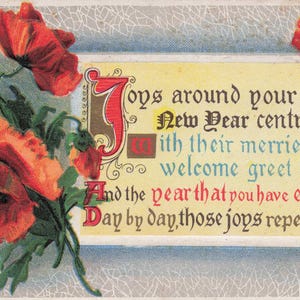 Joys around your
New Year centr
With their merrie
welcome greet
And the year that you have e
Day by day, those joys repe